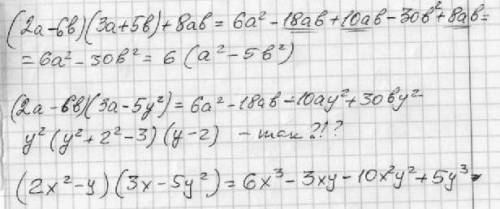 (2a-6b)(3a+5b)+8ab = 6a² - 18ab + 10ab - 30b² + 8ab =
= 6a² - 30b² = 6 (a² - 5b²)
(2a-6b)(3a-5y²) = 6a² - 18ab - 10ay² + 30by²
y² (y² + 2² - 3) (y - 2) - так ?!?
(2x² - y) (3x - 5y²) = 6x³ - 3xy - 10x²y² + 5y³